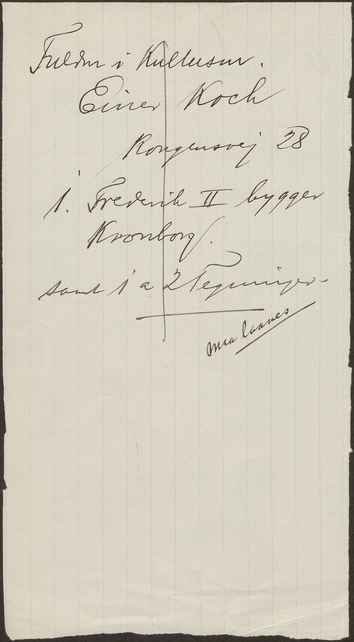 i
Einer Koch
Kongensvej 28
1. Frederik II bygger
Kronborg.
samt 1 a 2 Tegninger
maa laanes